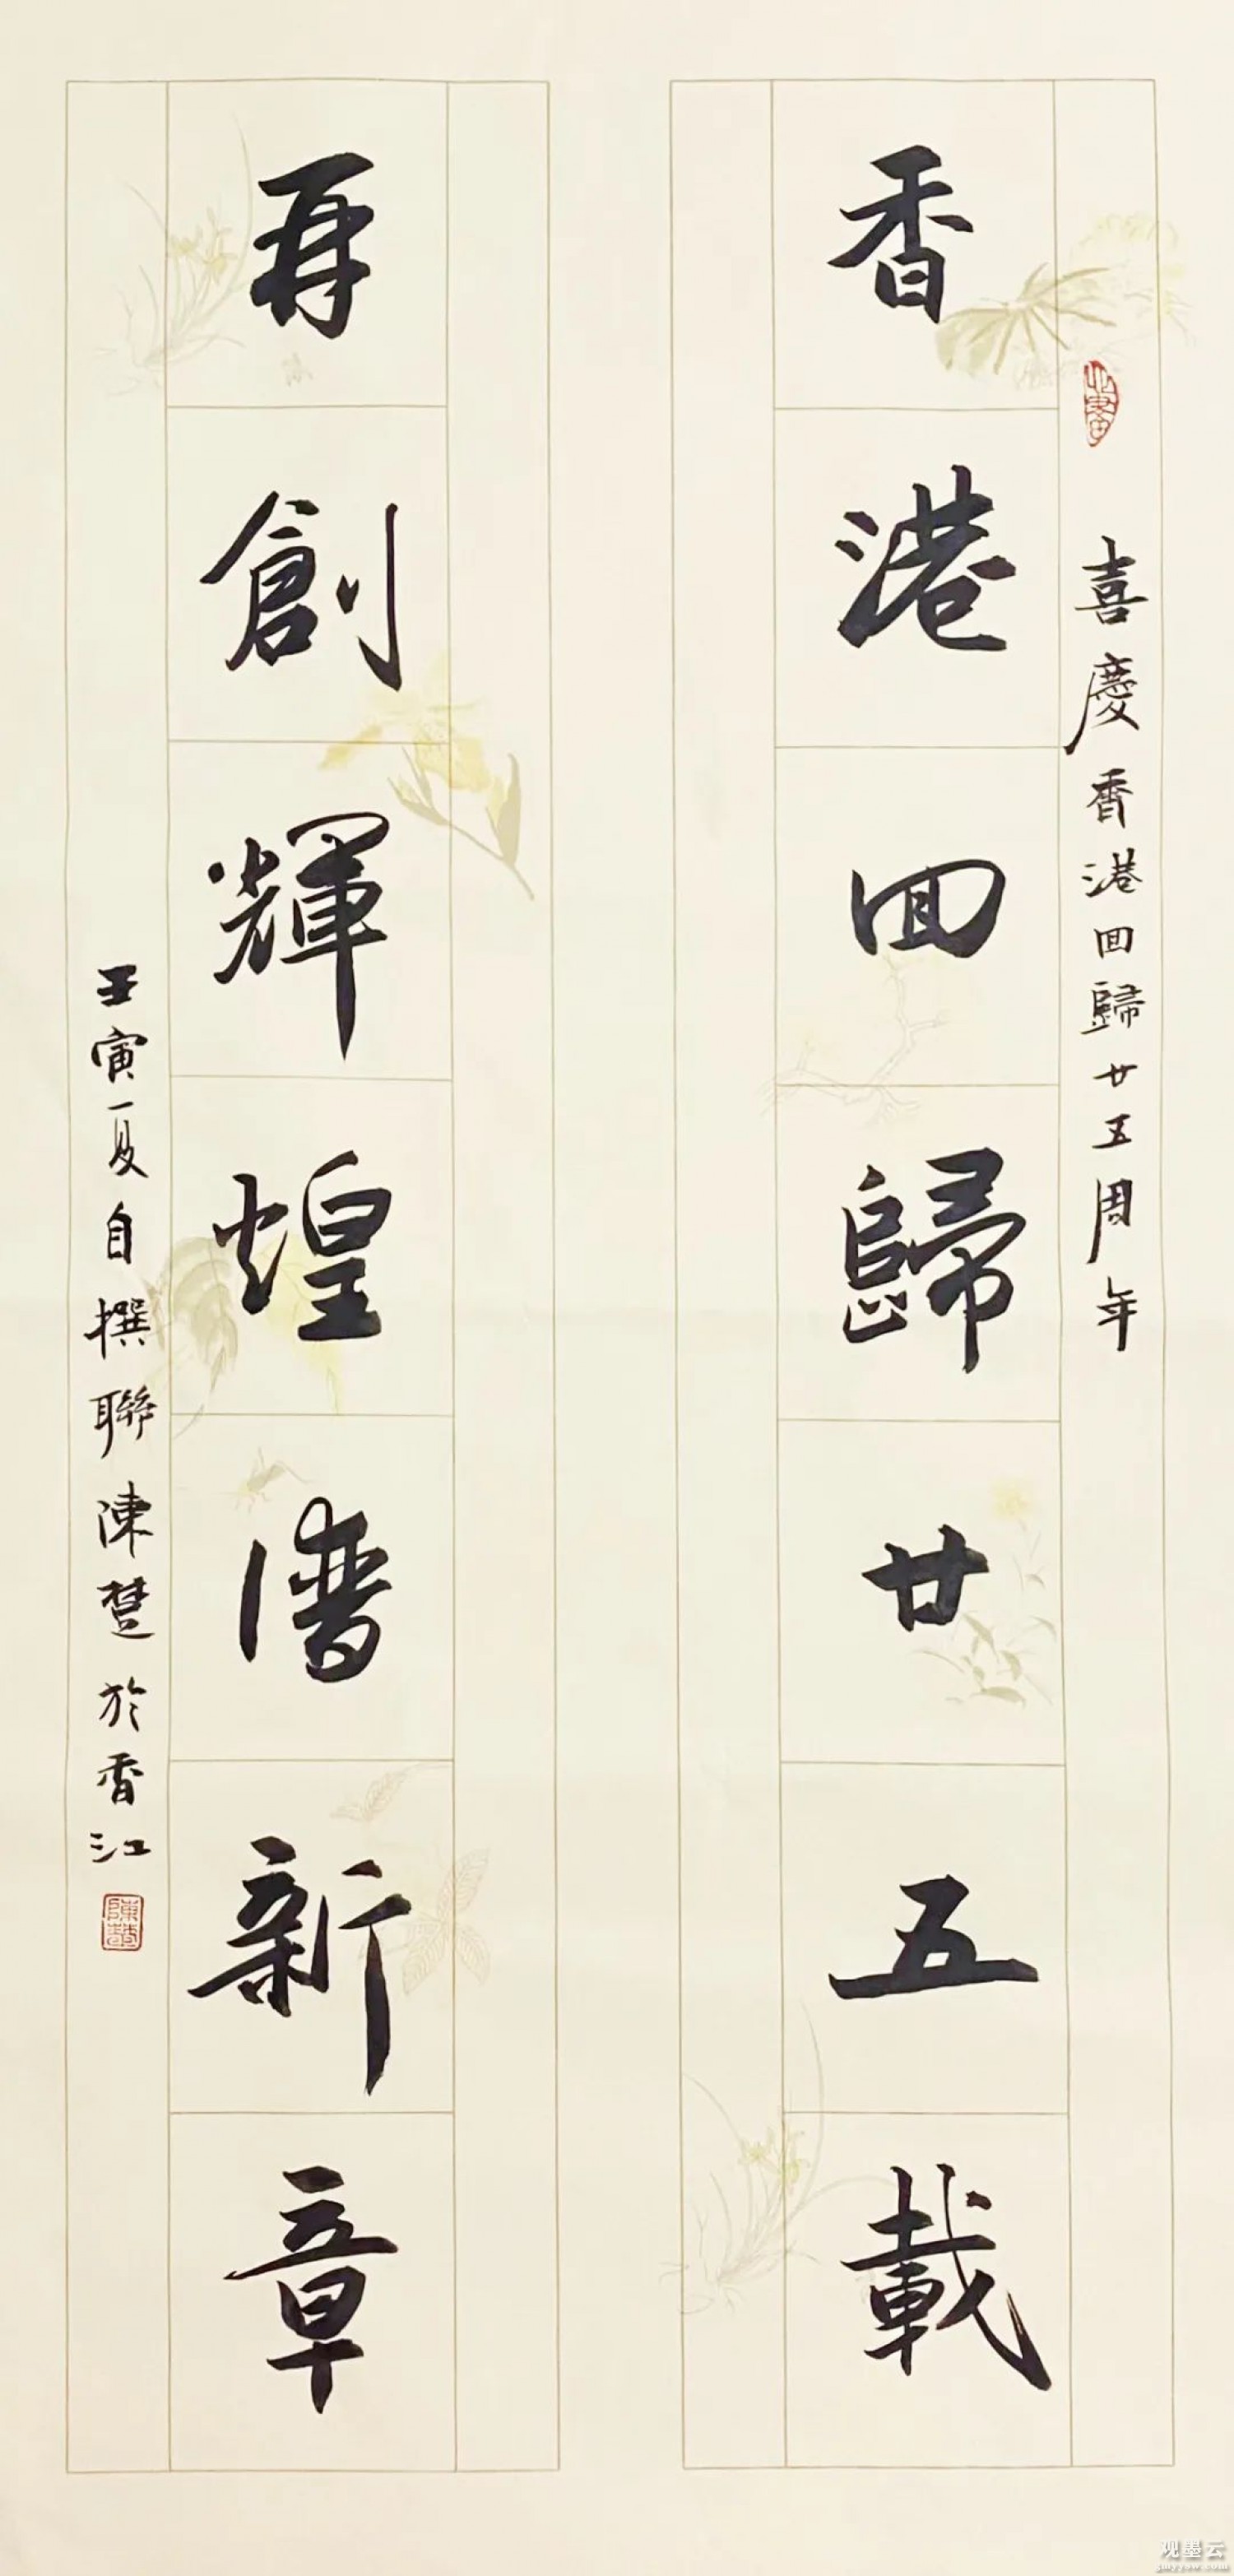 喜慶香港囬歸廿五周年
香港囬歸廿五載
再創輝煌譜新章
壬寅夏自撰聯陳楚於香江
陳楚
观墨云